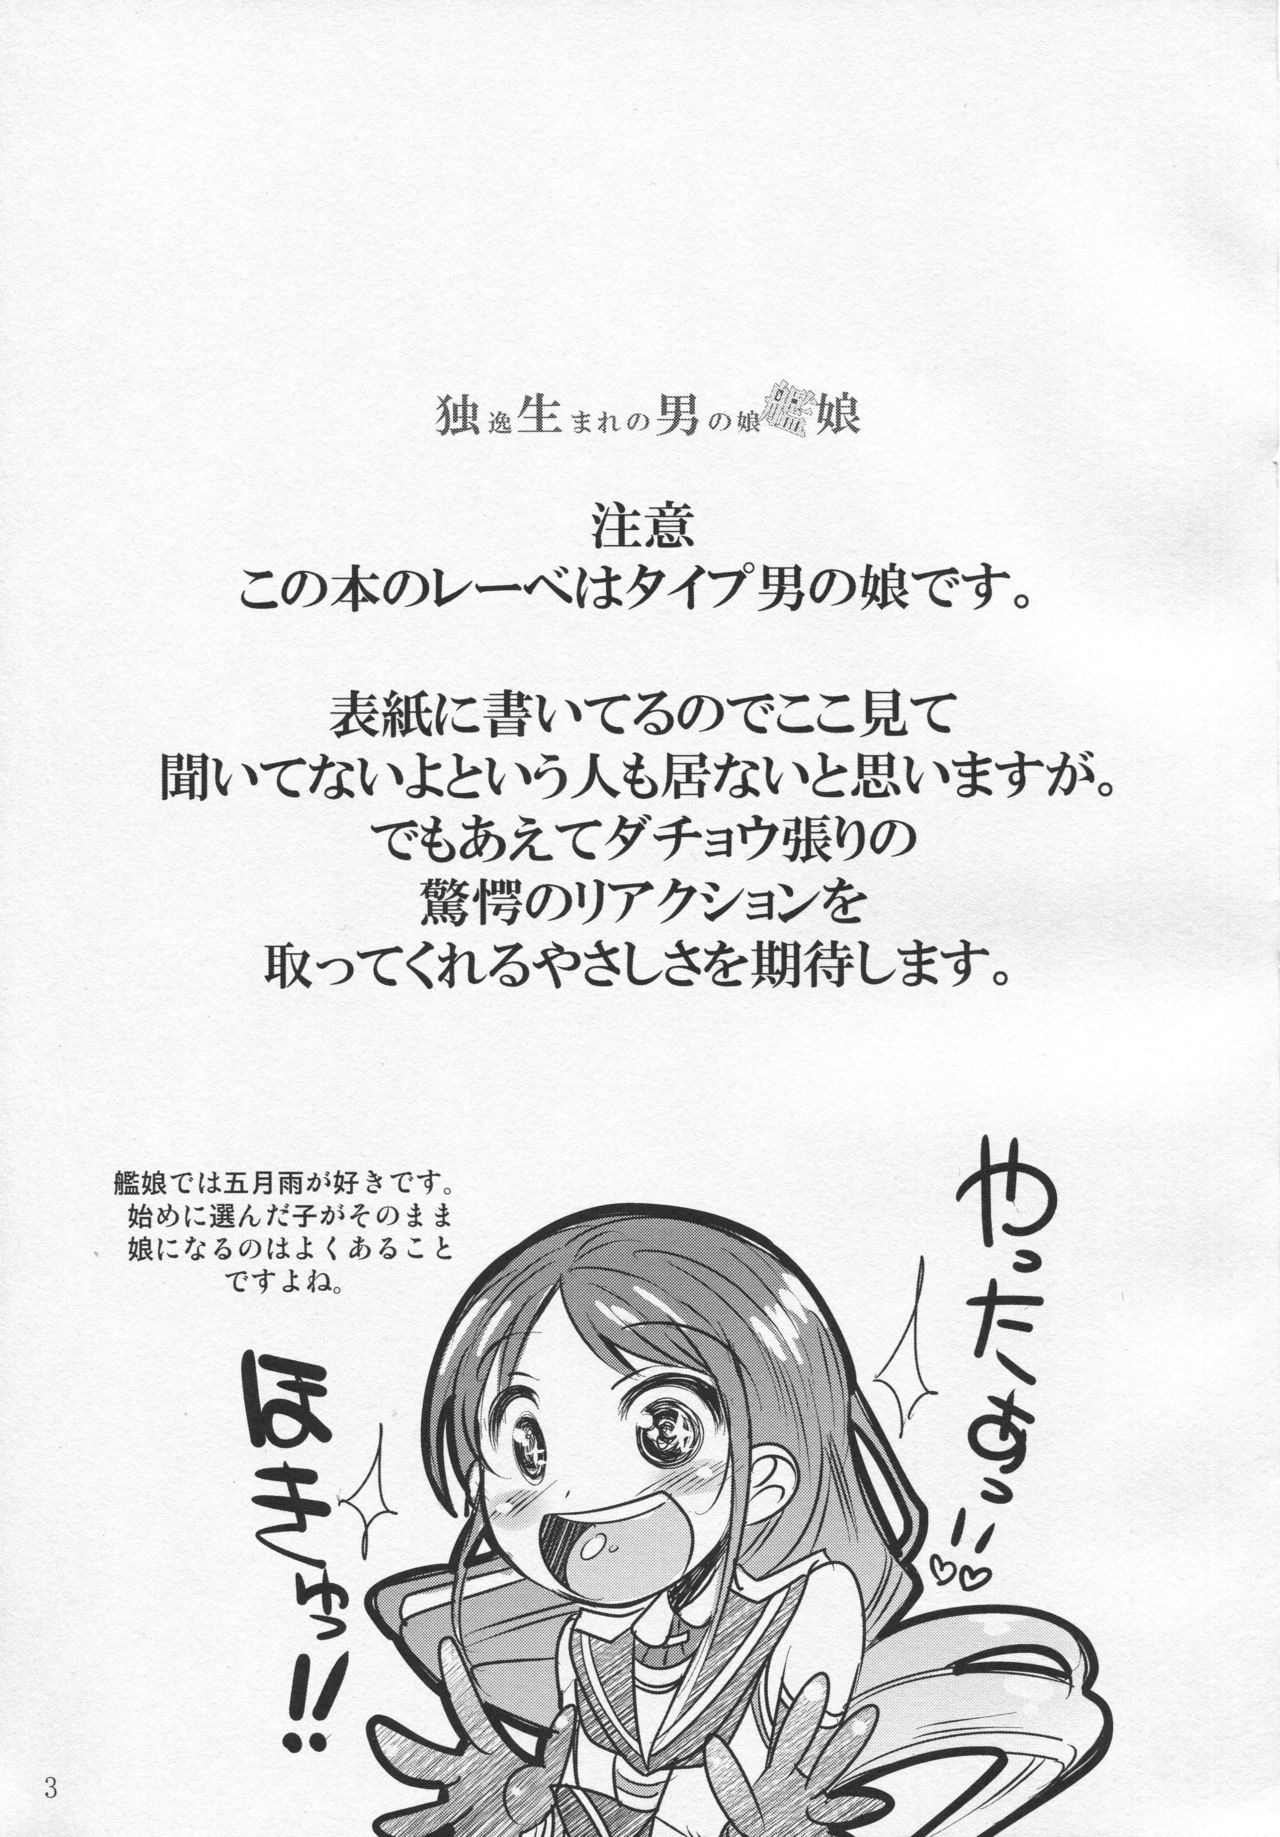 独逸生まれの男の娘艦娘
注意
この本のレーベはタイプ男の娘です。
表紙に書いてるのでここ見て
聞いてないよという人も居ないと思いますが。
でもあえてダチョウ張りの
驚愕のリアクションを
取ってくれるやさしさを期待します。
艦娘では五月雨が好きです。
始めに選んだ子がそのまま
娘になるのはよくあること
ですよね。
やったぁっ!!♡♡
ほきゅっ!!
3